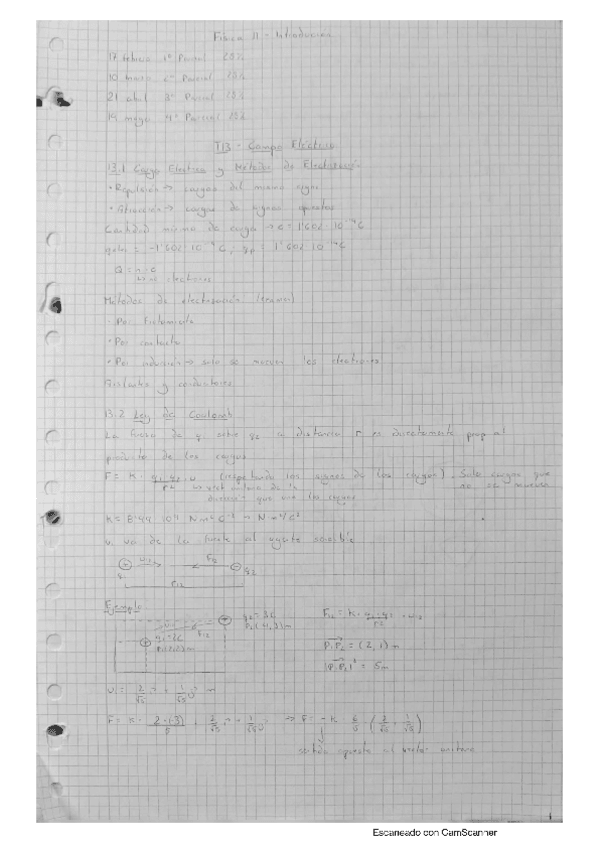 Física II - Introducción
17 febrero 1º Parcial 25%
10 marzo 2º Parcial
21 abril 3º Parcial
19 mayo 4º Parcial
T13 - Campo Eléctrico
13.1 Carga Eléctrica y Métodos de Electrización
• Repulsión → cargas del mismo signo
• Atracción → cargas de signos opuestos
Cantidad mínima de carga → e = 1'602 · 10⁻¹⁹ C
= -1'602 · 10⁻¹⁹ C ; = 1'602 · 10⁻¹⁹ C
Q = n · e
electrones
Métodos de electrización
• Por frotamiento
• Por contacto
• Por inducción → solo se mueven los electrones
Aislantes y conductores
13.2 Ley de Coulomb
La fuerza de q sobre q₂ la distancia r es directamente prop al
producto de las cargas
F = K · q₁ · q₂ / r² · u (respetando los signos de las cargas). Solo cargas que no se mueven
que une las cargas
K = 10⁹ N m² C⁻²
u va de la fuente al agente sensible
u₁₂ F₁₂
q₁ q₂
r₁₂
Ejemplo
q₁ = 2C
q₂ = 3C
P₂(4,3) m
F₁₂ = K · q₁ · q₂ / r² · u₁₂
P₁P₂ = (2, 1) m
|P₁P₂|² = 5 m
u = 2/√5 i + 1/√5 j m
F = K · 2·(-3)/5 · 2/√5 i + 1/√5 j ⇒ F = -K 6/5 (2/√5 , 1/√5)
sentido opuesto al vector unitario
Escaneado con CamScanner